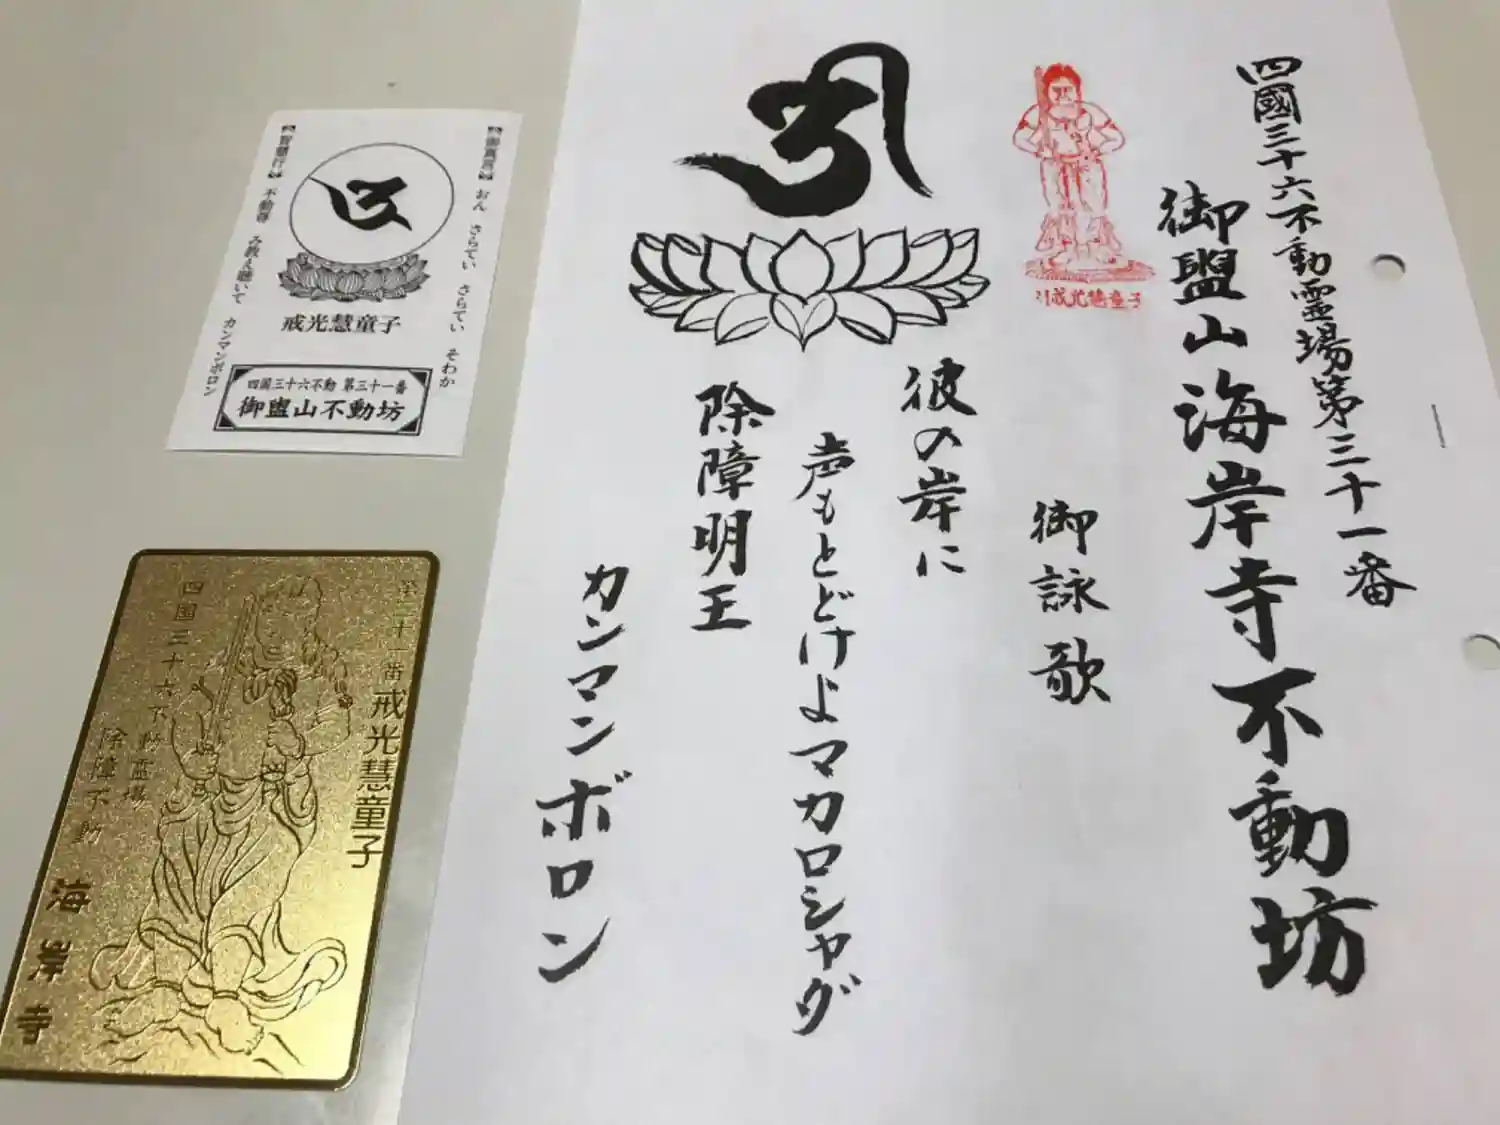 四國三十六不動霊場第三十一番
御盟山海岸寺不動坊
戒光慧童子
御詠歌
彼の岸に
声もとどけよマカロシャダ
除障明王
カンマンボロン
【御真言】 おん さらてい さらてい そわか
【智慧行】 不動尊 み教え継いで カンマンボロン
戒光慧童子
四国三十六不動 第三十一番
御盟山不動坊
第三十一番 戒光慧童子
四国三十六不動霊場
除障不動
海岸寺